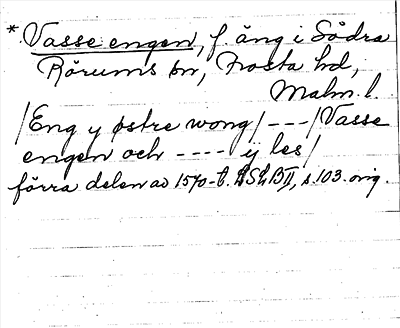 * Vasse engen, f äng i Södra
Rörums sn, Frosta hd,
Malm. l.
/Eng y østre wong/ --- /Vasse
engen och ---- ÿ les/
förra delen av 1570-t. LSLB II, s. 103. orig.